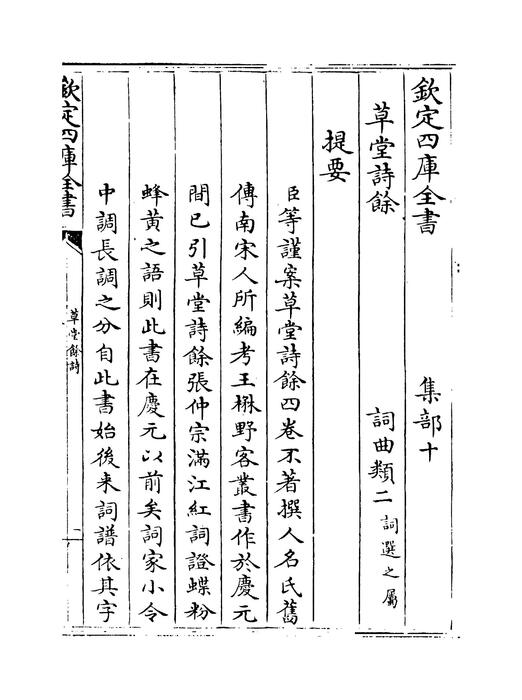 欽定四庫全書　集部十
草堂詩餘　詞曲類二 詞選之屬
提要
臣等謹案草堂詩餘四卷不著撰人名氏舊
傳南宋人所編考王楙野客叢書作於慶元
間已引草堂詩餘張仲宗滿江紅詞證蝶粉
蜂黄之語則此書在慶元以前矣詞家小令
中調長調之分自此書始後来詞譜依其字
欽定四庫全書
草堂餘詩